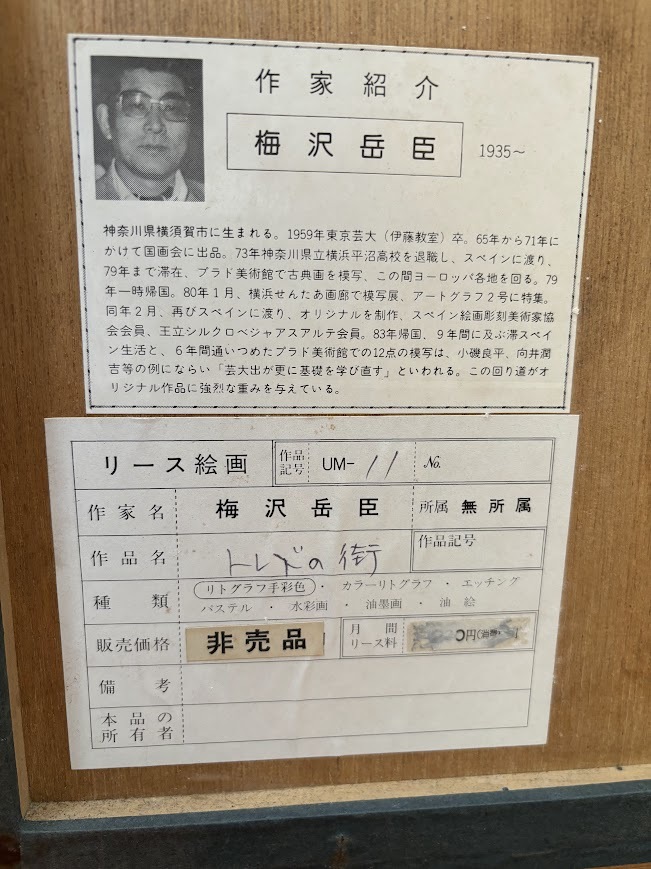 作家紹介
梅沢岳臣 1935～
神奈川県横須賀市に生まれる。1959年東京芸大（伊藤教室）卒。65年から71年に
かけて国画会に出品。73年神奈川県立横浜平沼高校を退職し、スペインに渡り、
79年まで滞在、プラド美術館で古典画を模写、この間ヨーロッパ各地を回る。79
年一時帰国。80年1月、横浜せんたあ画廊で模写展、アートグラフ2号に特集。
同年2月、再びスペインに渡り、オリジナルを制作、スペイン絵画彫刻美術家協
会会員、王立シルクロベジャアスアルテ会員。83年帰国、9年間に及ぶ滞スペイ
ン生活と、6年間通いつめたプラド美術館での12点の模写は、小磯良平、向井潤
吉等の例にならい「芸大出が更に基礎を学び直す」といわれる。この回り道がオ
リジナル作品に強烈な重みを与えている。
リース絵画 作品記号 UM-11 No.
作家名 梅沢岳臣 所属 無所属
作品名 トレドの街 作品記号
種類 リトグラフ手彩色・カラーリトグラフ・エッチング
パステル・水彩画・油墨画・油絵
販売価格 非売品 月間リース料 0円
備考
本品の所有者